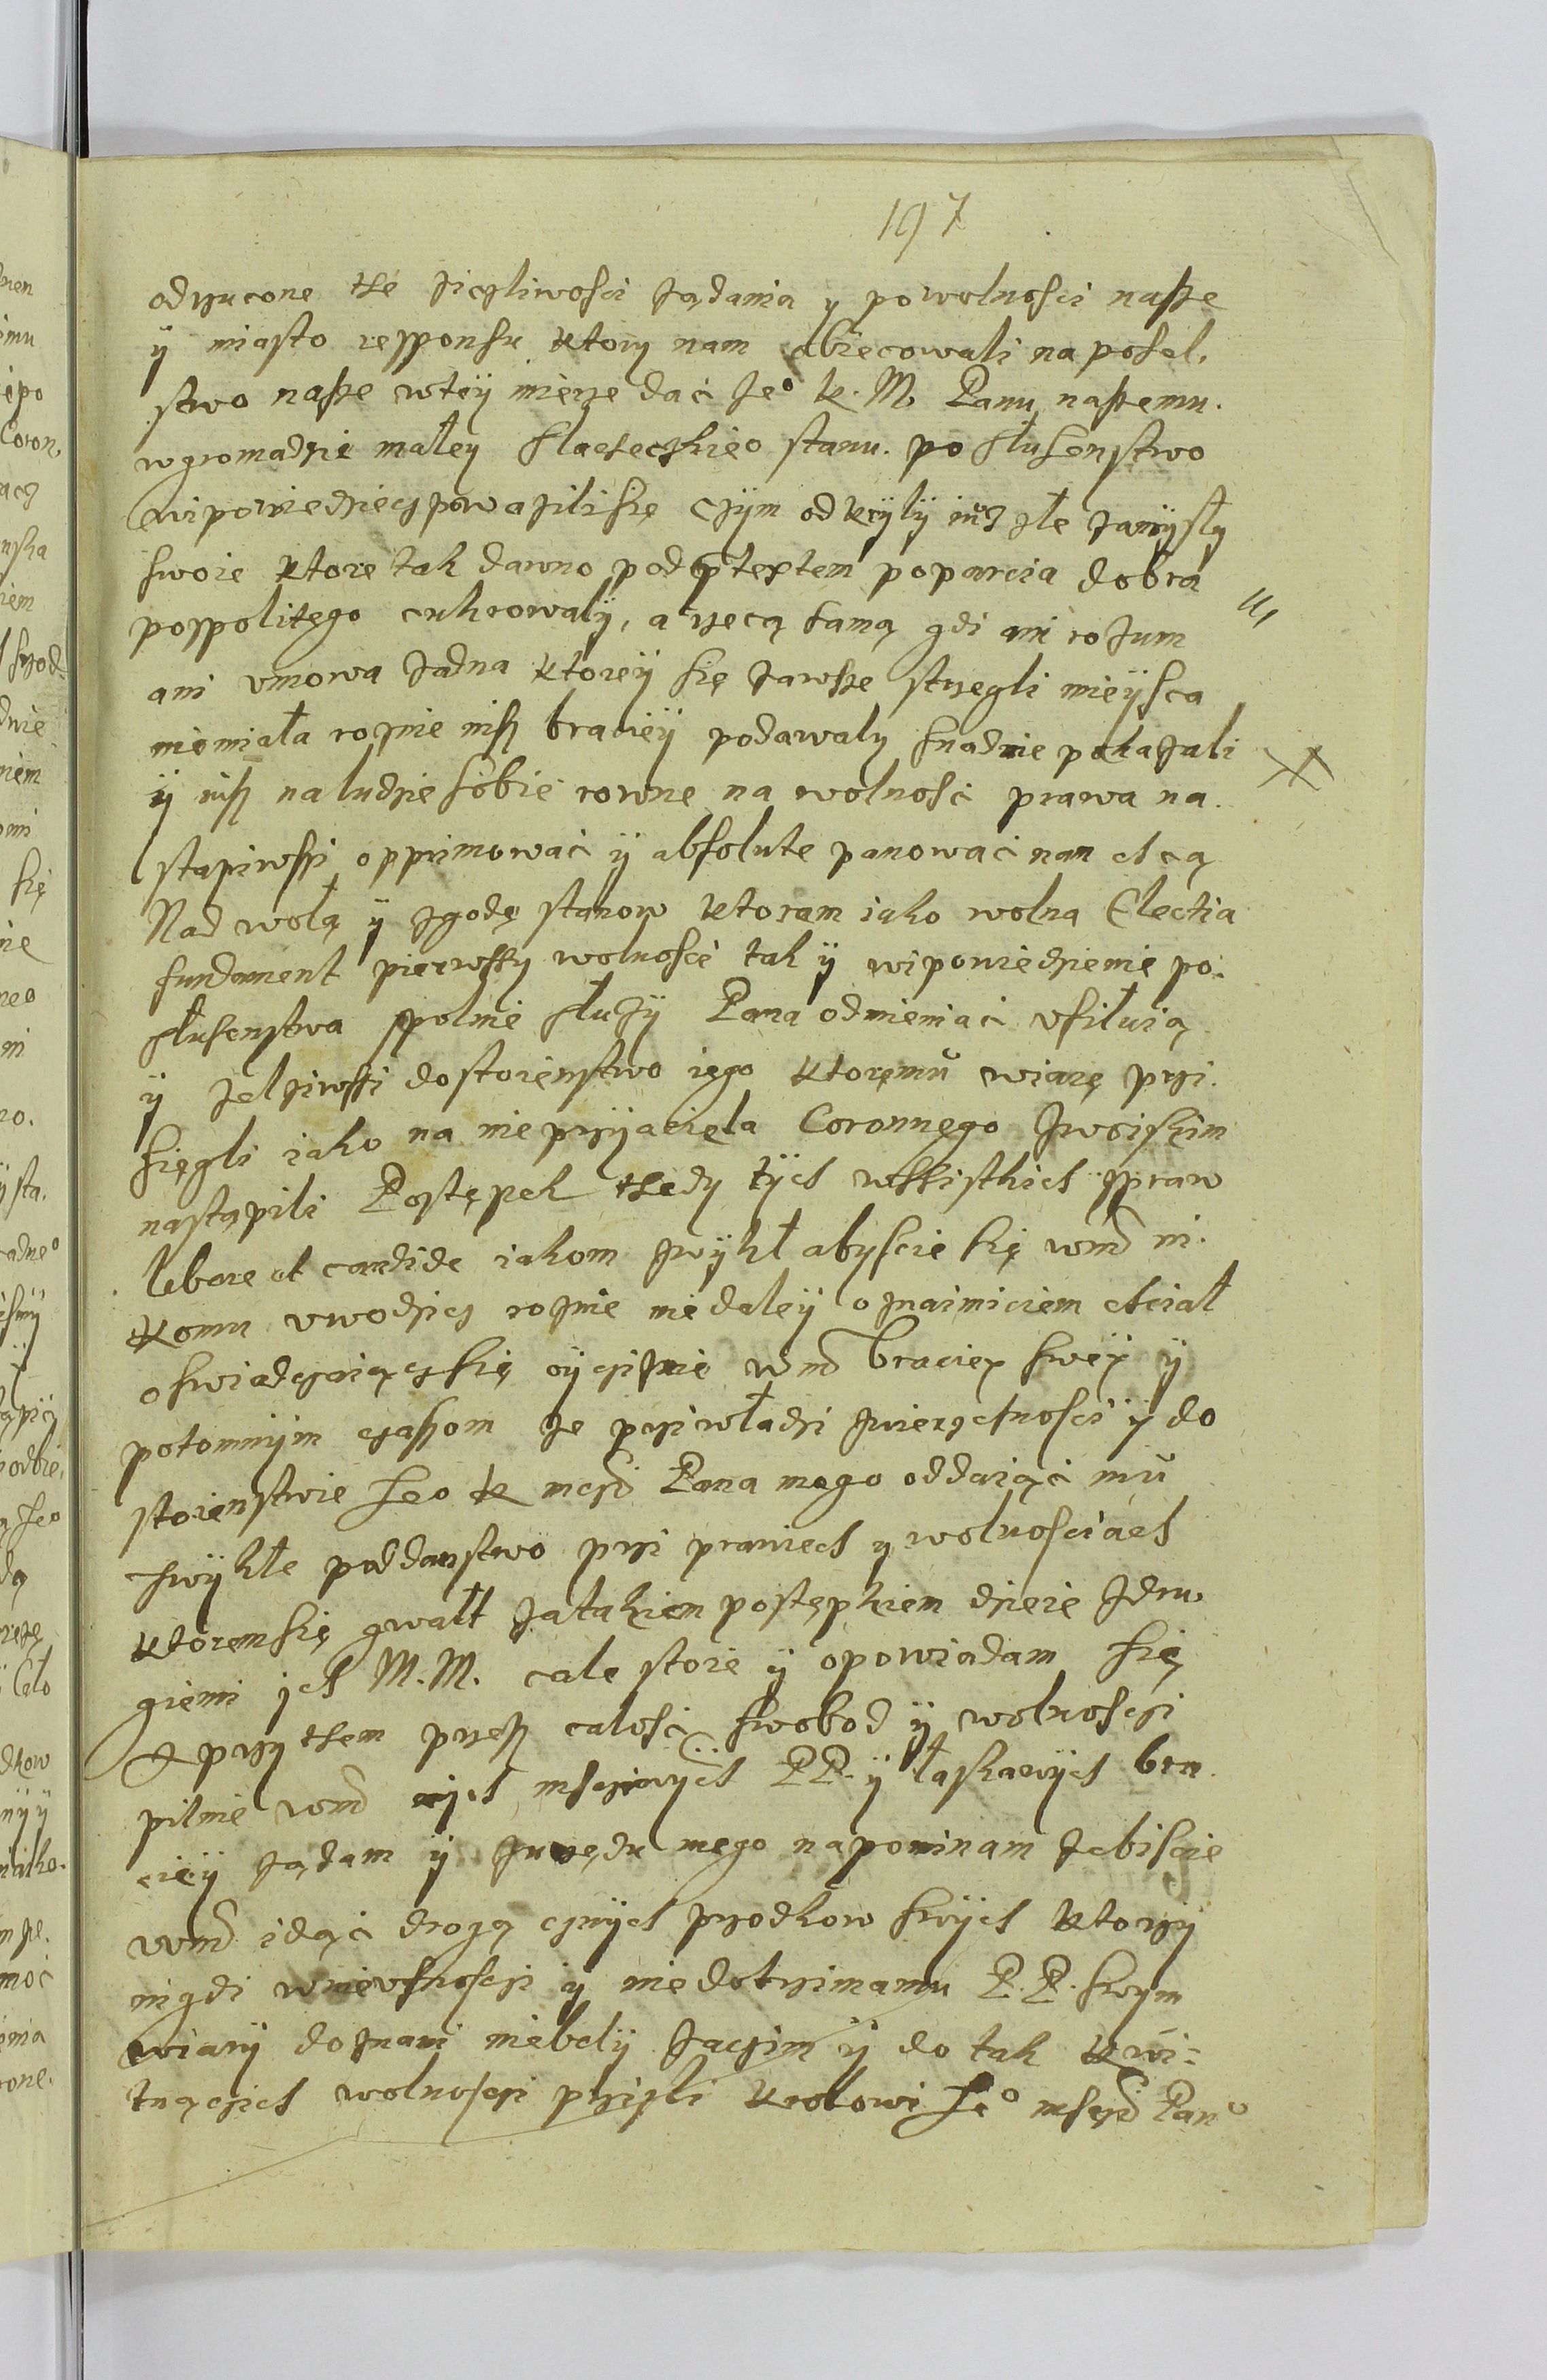 197
odrzucone thé ziczliwosci ządania y powolnosci nasze
ÿ miasto responsu ktory nam obiecowali na posel.
stwo nasze wteÿ mierze dać Jeº K. M. Panu naszemu.
wgromadzie małey slacheckieº stanu. posłuszenstwo
wipowiedziecz powazilisię czÿm odkrÿlÿ iuz złe zamÿsłÿ
swoie ktore tak dawno pod ptextem poparcia dobra
pospolitego cukrowalÿ, a rzeczą samą gdi ani rozum
ani vmowa zadna ktoreÿ się zawsze strzegli mieÿsca
niemiała roznie nisz bracieÿ podawalÿ snadnie pokazali
ÿ nisz naludzie sobie rowne na wolnosć prawa na.
stapiwssi opprimować ÿ absolute panować nam chcą
Nad wolą ÿ zgodę stanow ktoram iako wolna Electia
fundament pierwssy wolnoscé tak ÿ wipowiedzienie po.
słusenstwa spolnie słuzÿ Pana odmieniać vsiłuią
ÿ zelziwssi dostoienstwo iego ktoremŭ wiarę przi.
sięgli iako na nieprzyaciela Coronnego zwoiskim
nastąpili Postępek thedy tÿch wssistkich spraw
libere et candide iakom zwÿkł abyscie się wmć ni.
komu vwodzicz roznie nie daleÿ oznaimiciem chciał
oswiadczaiączsię oÿczisznie wmć bracieÿ sweÿ ÿ
potomnÿm czassom że przi władzi zwierzchnosci ÿ do
stoienstwie Jeo K mczi Pana mego oddaiąć mŭ
swÿkłe poddanstwo przi prawiech y wolnosciach
ktoremsię gwałt zatakiem postępkiem dzieie zdru
giemi ich M. M. cale stoie ÿ opowiadam się
A przy them przesz calosć swobod ÿ wolnosczi
pilnie wmć mych msciwÿch PP. ÿ łaskawÿch bra
cieÿ ządam ÿ zurzędu mego napominam zebiscie
wmć idąć drogą cznÿch przodkow swÿch ktorzÿ
nigdi wnievfnosczi ÿ niedotrzimaniu P. P. swym
wiarÿ doznani niebelÿ zaczim ÿ do tak kwi:
tnączich wolnosczi przisli krolowi Jeº msczi Panu